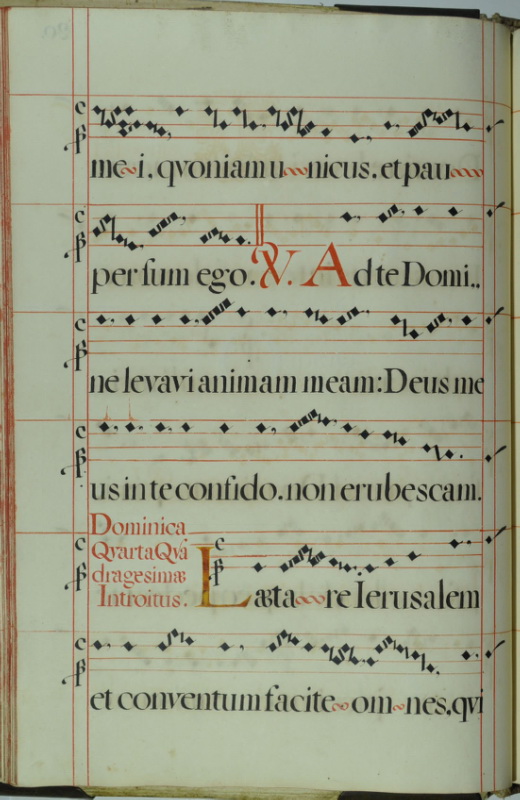 me i. qvoniam u nicus. et pau
per sum ego. V. Ad te Domi..
ne levavi animam meam: Deus me
us in te confido. non erubescam.
Dominica
Qvarta Qva
dragesimæ
Introitus.
Læta re Ierusalem
et conventum facite om nes, qvi